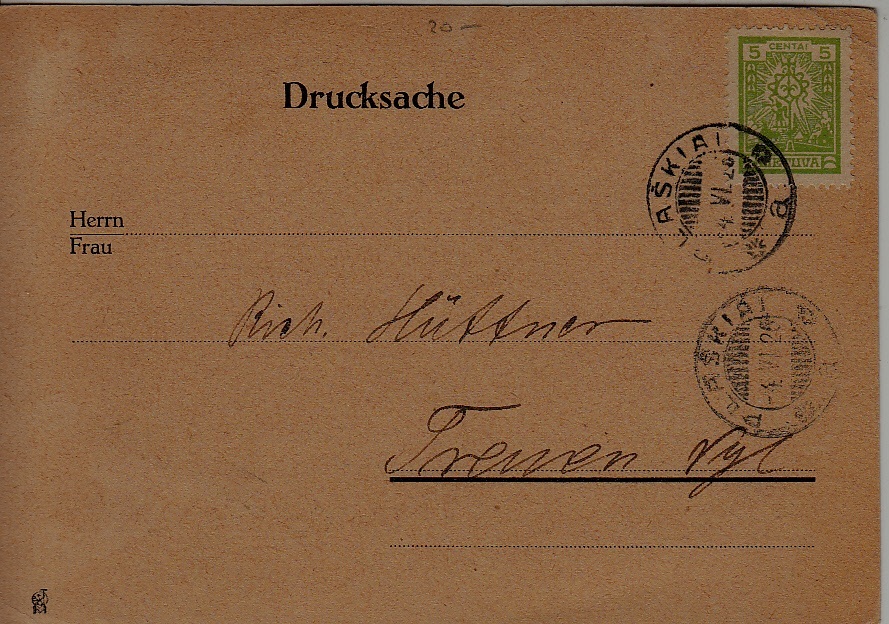 20 —
Drucksache
5 CENTAI 5
LIETUVA
AŠKIAI
4 VI 26
a
Herrn
Frau
Rich. Hüttner
AŠKIAI
-4 VI 26
Treuen Vgl